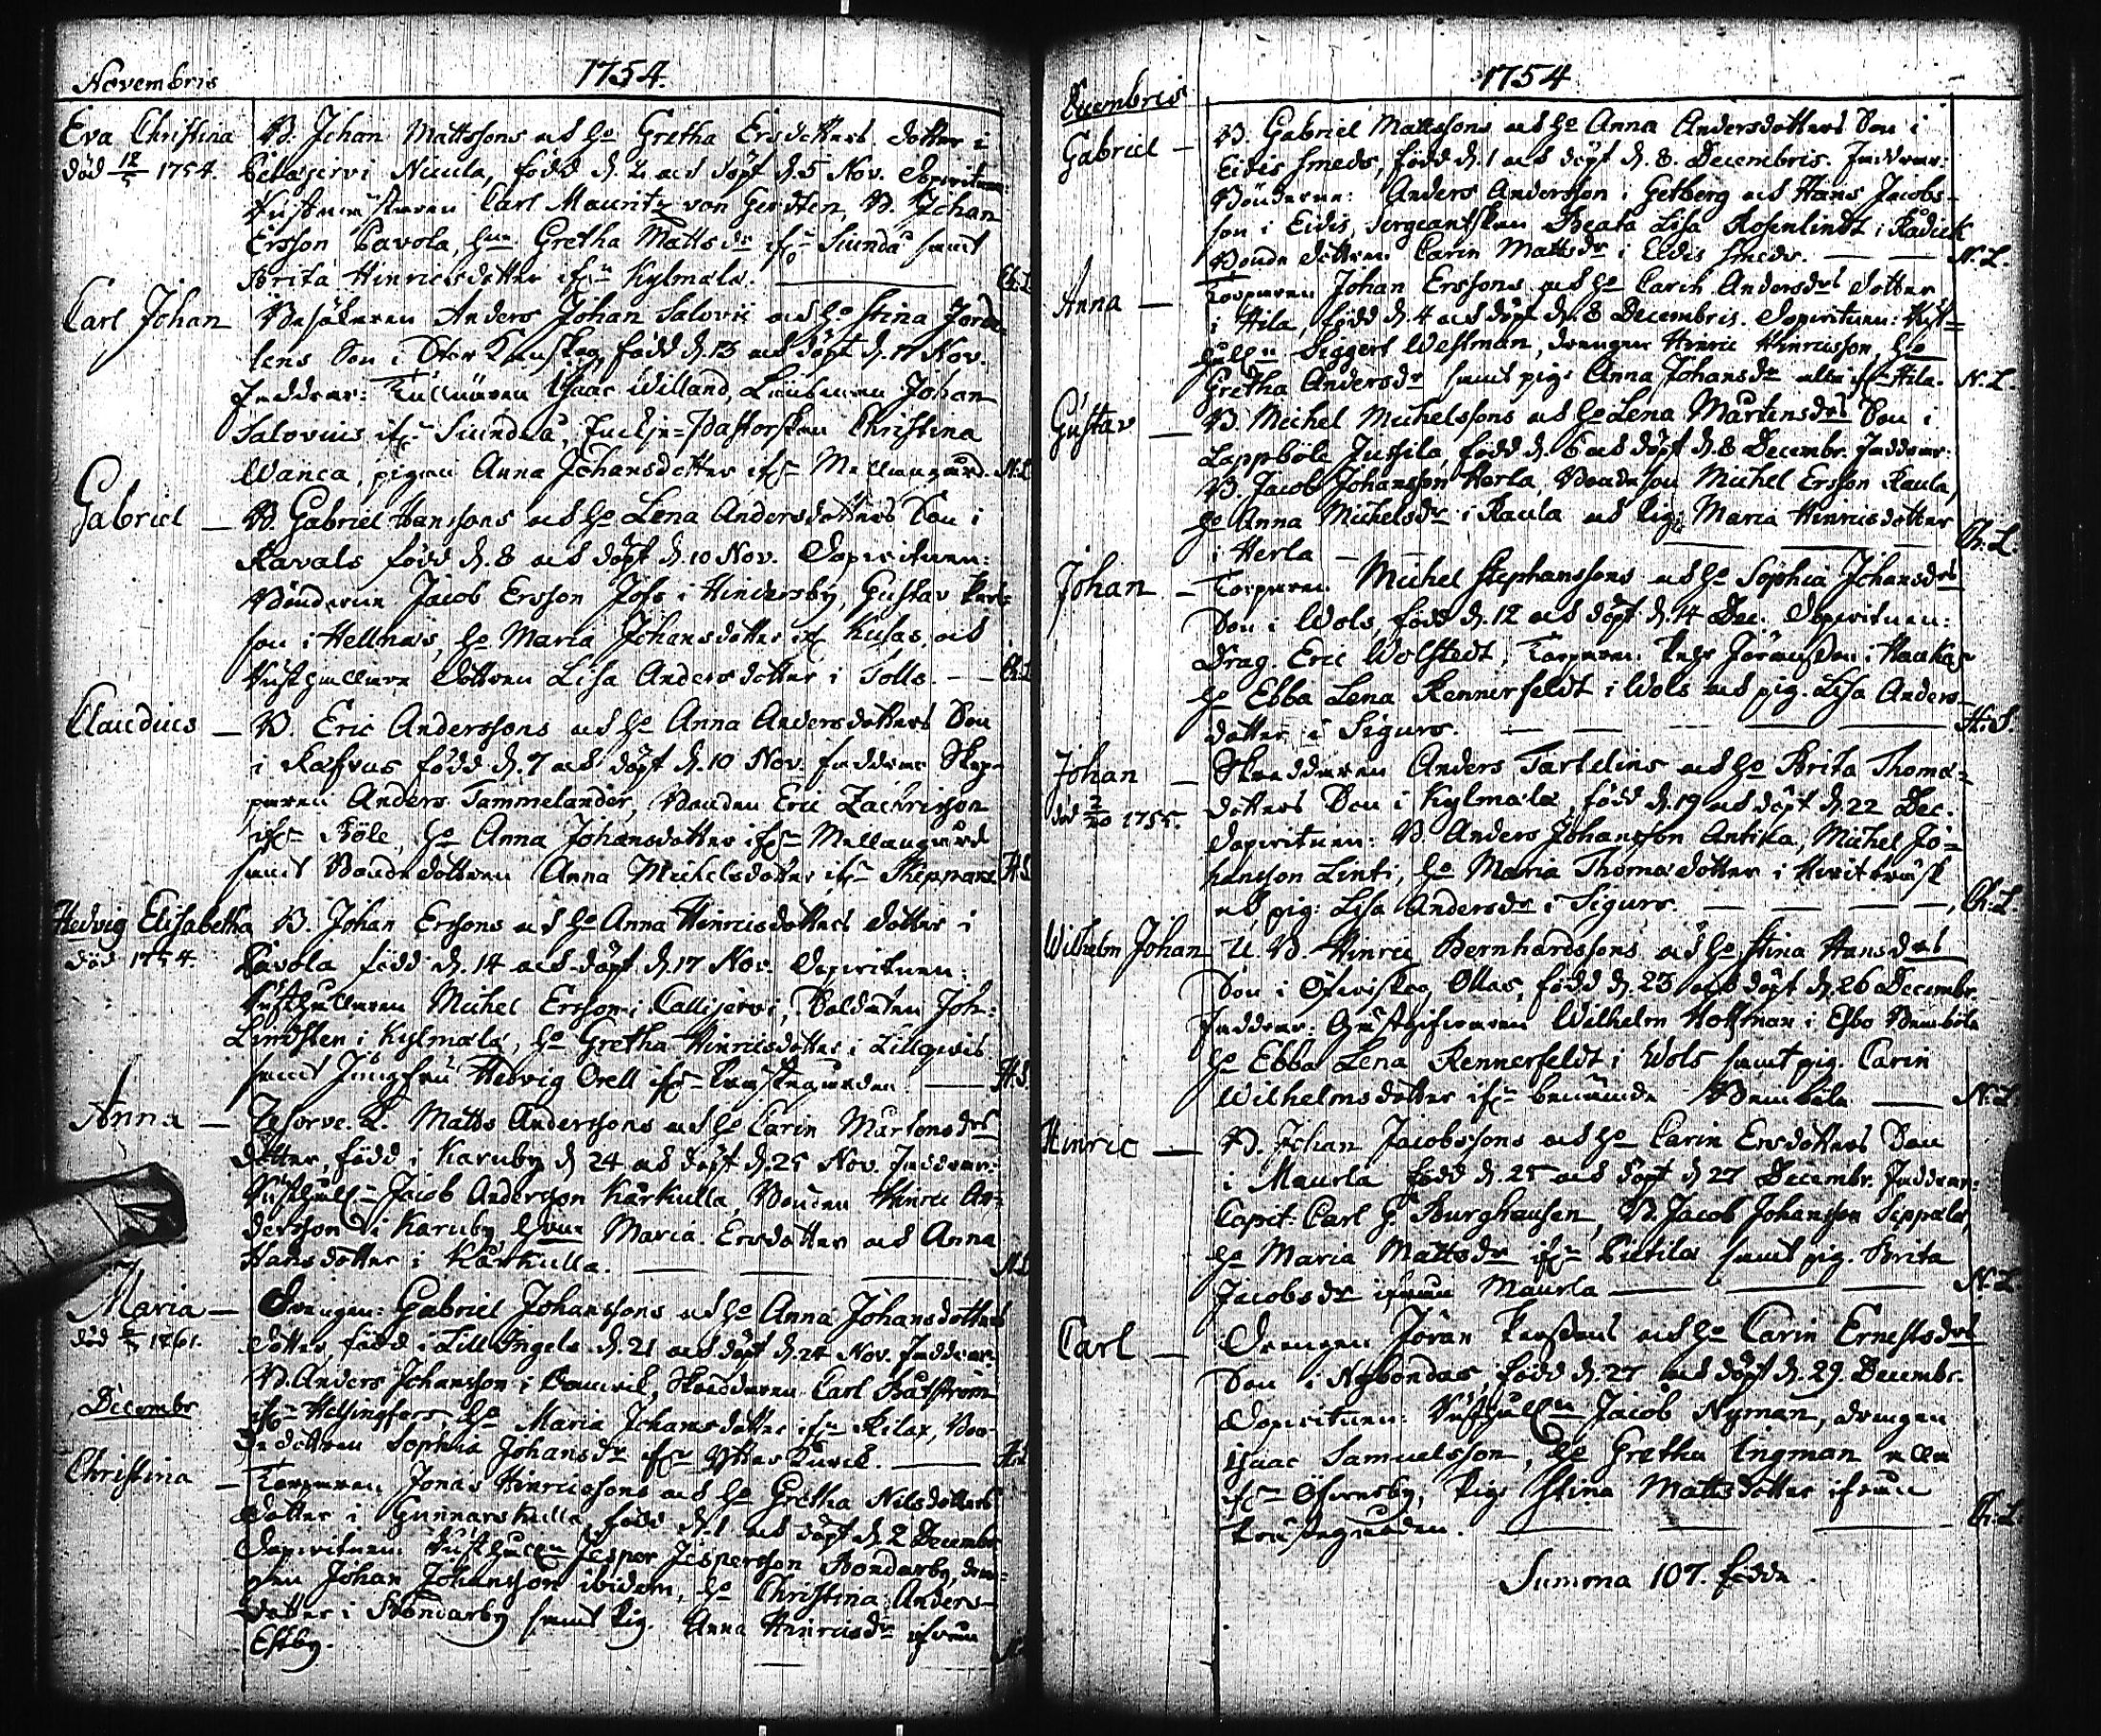 Novembris 1754.
Eva Christina B. Johan Mattssons och H:o Gretha Ersdotters dotter i
död 12/5 1754. Nicula, född d. 2 och döpt d. 5 Nov.
Carl Mauritz von Gerdten, B. Johan
Ersson Pavola, Gretha Mattsdr ifrn Siundå samt
Brita Hinricsdotter ifrn Kylmala.
Carl Johan Anders Johan Salovii och H:o Stina
Son i Stor född d. 13 och döpt d. 17 Nov.
Faddrar: Isaac Willand, Länsman Johan
Salovius ifrn Siundå, Pastorskan Christina
Wanca, pigan Anna Johansdotter ifrn Mellangård. N.L.
Gabriel — B. Gabriel Hanssons och H:o Lena Andersdotters Son i
Ravals född d. 8 och döpt d. 10 Nov. Dopvitnen:
Bönderne Jacob Ersson Jofs i Hindersby, Gustav
son i Hellnäs, H:o Maria Johansdotter ifr Kusas, och
dottren Lisa Andersdotter i Tolls. —
Claudius — B. Eric Anderssons och H:o Anna Andersdotters Son
i Rafvas född d. 7 och döpt d. 10 Nov. faddrar
Anders Tammelander, Bonden Eric Zachrisson
ifrn Böle, H:o Anna Johansdotter ifrn Mellangård
samt Bondedottren Anna Michelsdotter ifrn Skeppars
Hedvig Elisabetha B. Johan Erssons och H:o Anna Hinricsdotters dotter i
död 1754. Pavola född d. 14 och döpt d. 17 Nov. Dopvitnen:
Michel Ersson i Callijervi, Soldaten Joh:
Lindsten i Kylmala, H:o Gretha Hinricsdotter i Lillqvis
samt Jungfru Hedvig Orell ifrn Prestegården. — H.S.
Anna — Reserve. K. Matts Anderssons och H:o Carin Mårtensdrs
dotter, född i Karuby d. 24 och döpt d. 25 Nov. Faddrar:
Jacob Andersson Kärkulla, Bonden Hinric An=
dersson i Karuby, Maria Ersdotter och Anna
Hansdotter i Kärkulla. — N.L.
Maria — Drengen: Gabriel Johanssons och H:o Anna Johansdotters
död 1761. dotter, född i Lill Ingels d. 21 och döpt d. 24 Nov. Faddrar:
B. Anders Johansson i Båtvik, Skreddaren Carl Båtström
ifrn Helsingfors, H:o Maria Johansdotter ifrn Kilax, Bon=
dedottren Sophia Johansdr ifrn Ytter Kurck. —
Decembr
Christina — Torparen Jonas Hinricssons och H:o Gretha Nilsdotters
dotter i Gunnarskulla, född d. 1 och döpt d. 2 Decembr
Dopvitnen: Jesper Jespersson Bondarby, dren=
gen Johan Johansson ibidem, H:o Christina Anders=
dotter i Bondarby samt Pig. Anna Hinricsdr ifrån
Estby.
Decembris 1754
Gabriel — B. Gabriel Mattssons och H:o Anna Andersdotters Son i
Eidis Smeds, född d. 1 och döpt d. 8. Decembris. Faddrar:
Bönderne: Anders Andersson i Getberg och Hans Jacobs=
son i Eidis, Sergeantskan Beata Lisa Rosenlindt i
Bondedottren Carin Mattsdr i Eidis Smeds. — N.L.
Anna — Torparen Johan Erssons och H:o Carin Andersdrs dotter
i Hila, född d. 4 och döpt d. 8 Decembris. Dopvitnen:
Siggert Westman, drengen Hinric Hinricsson, H:o
Gretha Andersdr samt pig: Anna Johansdr alla ifrn Hila. N.L.
Gustav — B. Michel Michelssons och H:o Lena Mårtensdrs Son i
Lappböle Jussila, född d. 6 och döpt d. 8 Decembr. Faddrar:
B. Jacob Johansson Herla, Bondeson Michel Ersson Raula,
H:o Anna Michelsdr i Raula och Pig: Maria Hinricsdotter
i Herla — Ch.L.
Johan — Torparen Michel Stephanssons och H:o Sophia Johansdrs
Son i Wols, född d. 12 och döpt d. 14 Dec. Dopvitnen:
Drag. Eric Wolstedt, Torparen Jöransson i
H:o Ebba Lena Rennerfeldt i Wols och pig. Lisa Anders=
dotter i Sigurs. — H.S.
Johan — Skreddaren Anders Tartelins och H:o Brita Thomæ=
död 2/20 1755. dotters Son i Kylmala, född d. 19 och döpt d. 22 Dec.
Dopvitnen: B. Anders Johansson Antika, Michel Jo=
hansson Linti, H:o Maria Thomædotter i
och pig: Lisa Andersdr i Sigurs. — Ch.L.
Wilhelm Johan U. B. Hinric Bernhardssons och H:o Stina Hansdrs
Son i Öfwiskog Ollas, född d. 23 och döpt d. 26 Decembr
Faddrar: Gästgifwaren Wilhelm Hoffman i Esbo Bemböle
H:o Ebba Lena Rennerfeldt i Wols samt pig. Carin
Wilhelmsdotter ifrn benämde Bemböle — N.L.
Hinric — B. Johan Jacobssons och H:o Carin Ersdotters Son
i Maurla född d. 25 och döpt d. 27 Decembr. Faddrar:
Capit: Carl G. Burghausen, B. Jacob Johansson Seppala,
H:o Maria Mattsdr ifrn Pietila samt pig. Brita
Jacobsdr ifrån Maurla — N.L.
Carl — Drengen Jöran och H:o Carin Ernestsdrs
Son i Nybondas, född d. 27 och döpt d. 29. Decembr.
Dopvitnen: Jacob Nyman, drengen
Isaac Samuelsson, H:o Gretha Lingman alla
ifrn Öfvernsby, Pig: Stina Mattsdotter ifrån
Prestegården. — Ch.L.
Summa 107. födde.